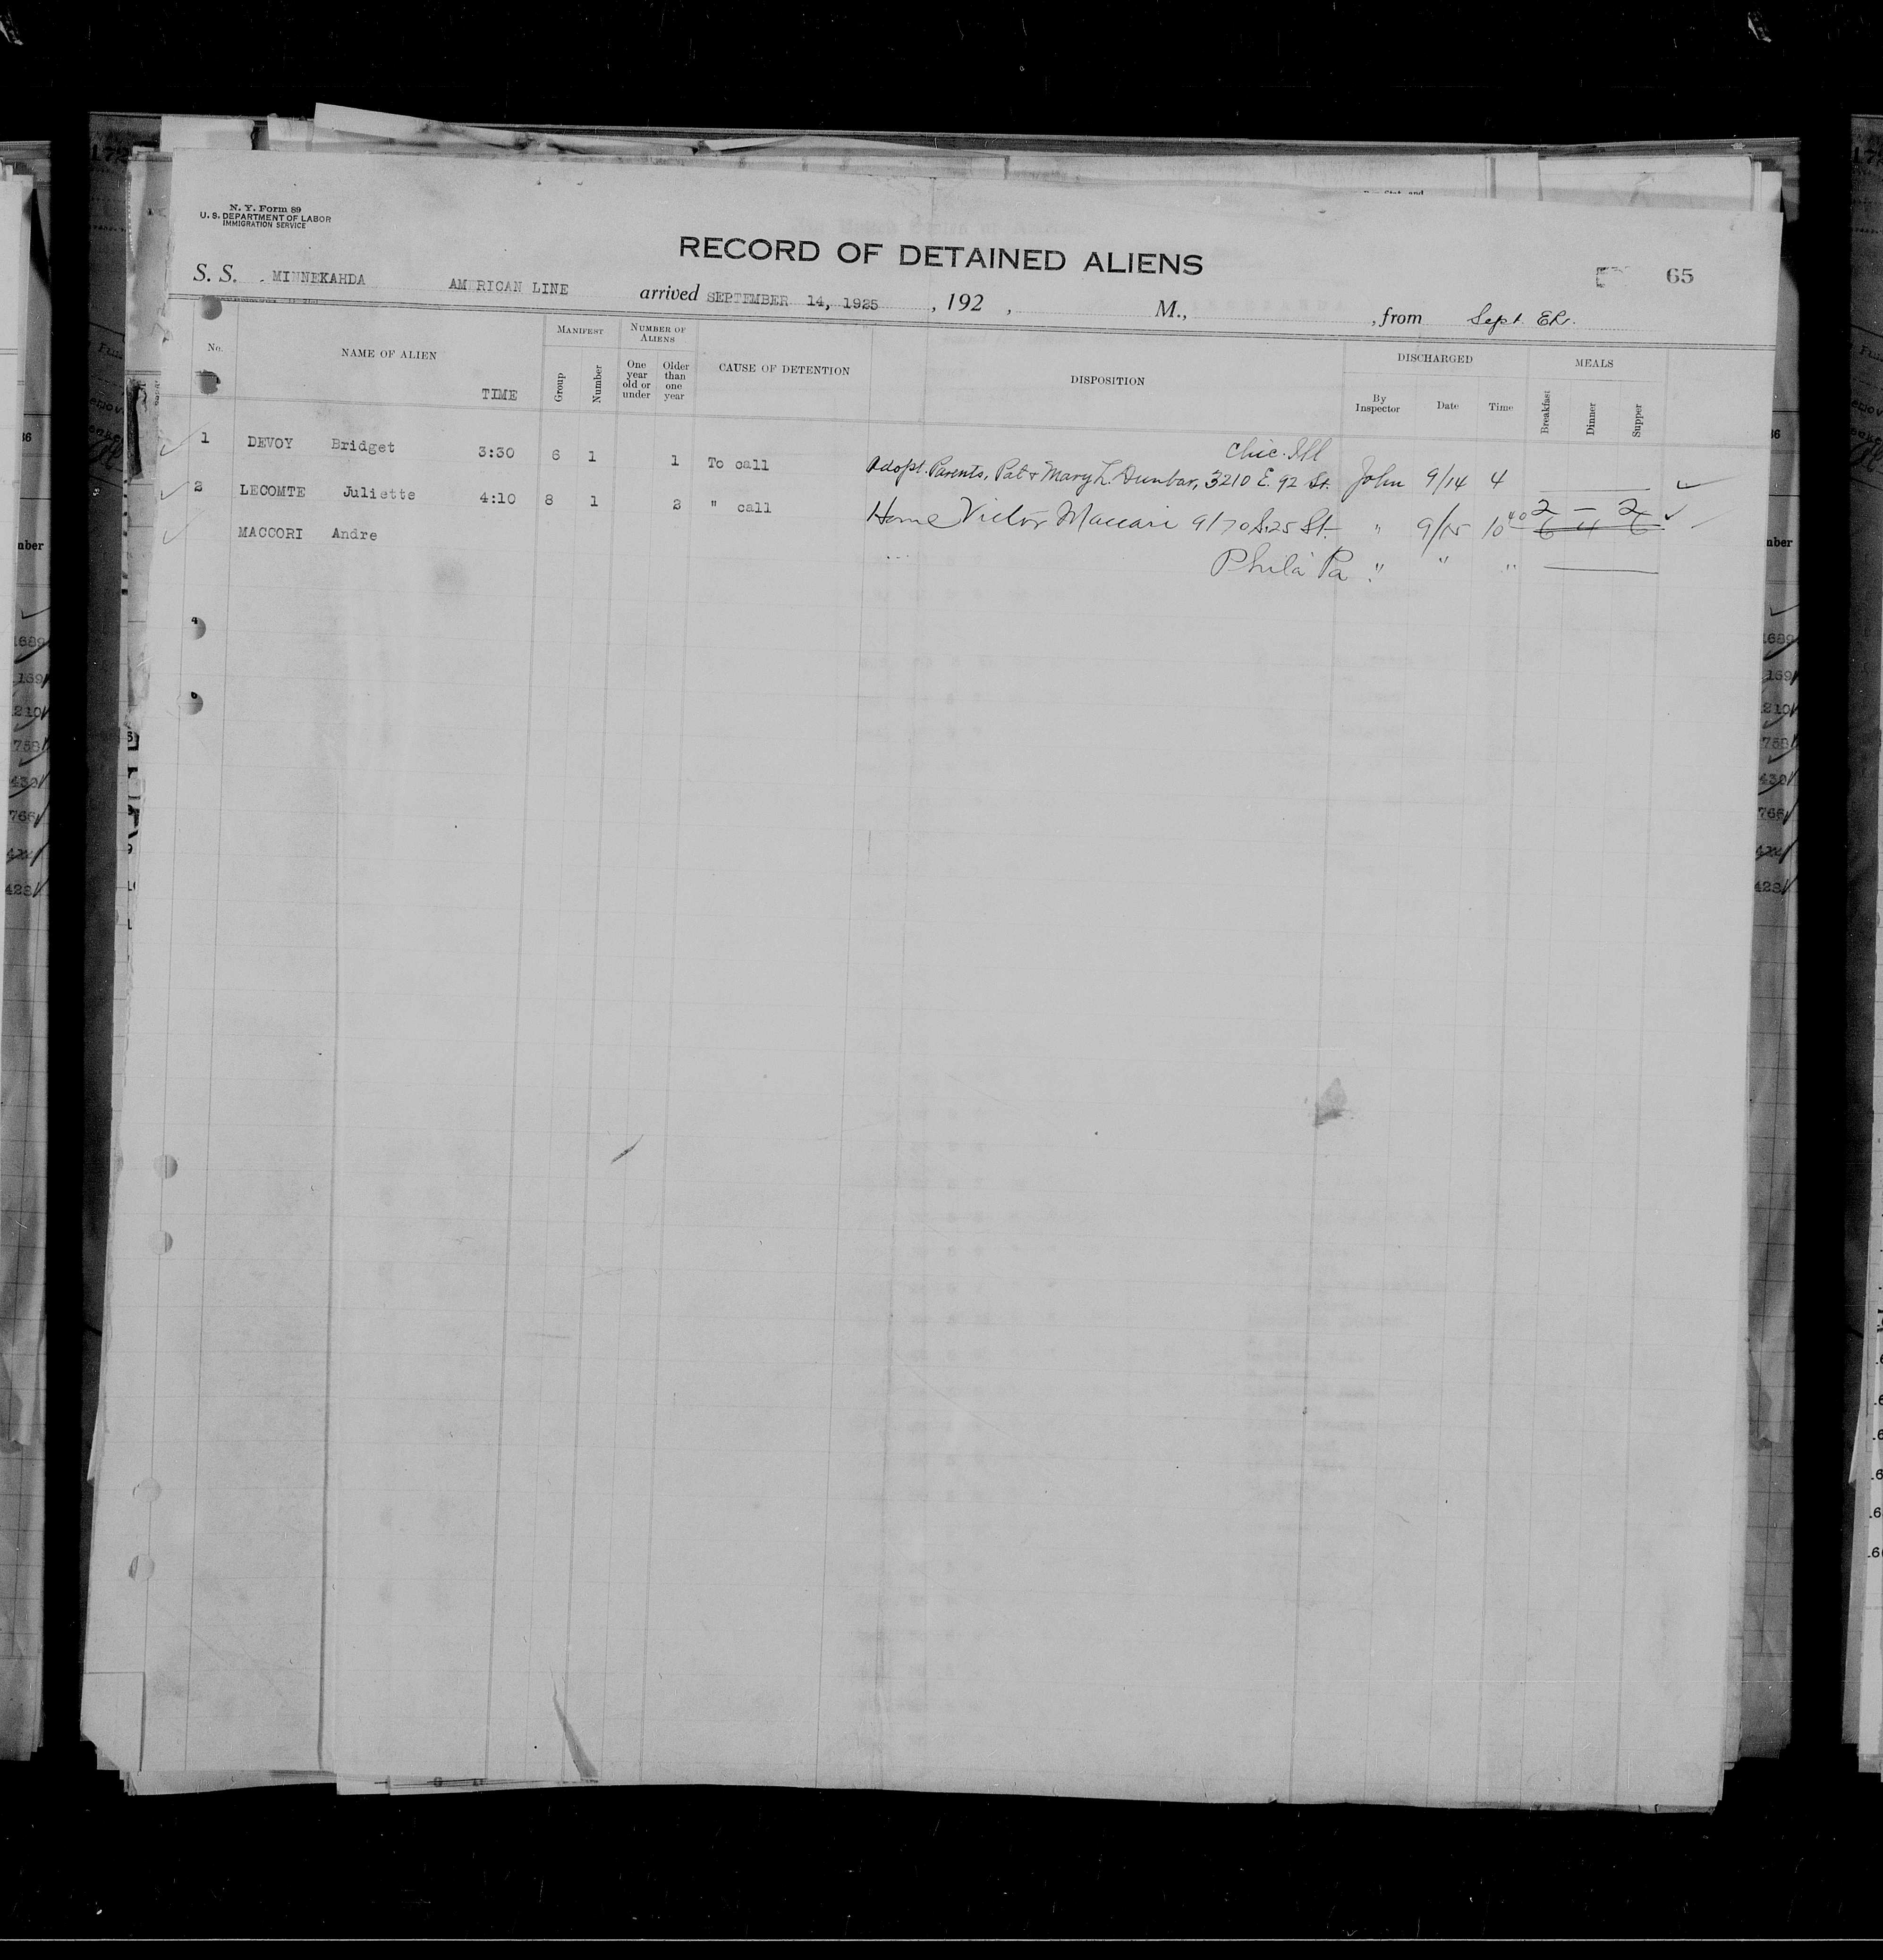 N. Y. Form 89
U. S. DEPARTMENT OF LABOR
IMMIGRATION SERVICE
RECORD OF DETAINED ALIENS
65
S. S. MINNEKAHDA AMERICAN LINE arrived SEPTEMBER 14, 1925, 192 , M., , from Sept.
No. NAME OF ALIEN TIME MANIFEST Group Number NUMBER OF ALIENS One year old or under Older than one year CAUSE OF DETENTION DISPOSITION DISCHARGED By Inspector Date Time MEALS Breakfast Dinner Supper
Chic. Ill
1 DEVOY Bridget 3:30 6 1 1 To call Adopt. Parents, Pat & Mary L. Dunbar, 3210 E. 92 St. John 9/14 4
2 LECOMTE Juliette 4:10 8 1 2 " call Victor Maccari St. " 9/15 10 40 2 — 2
MACCORI Andre
Phila Pa " " "
4
6